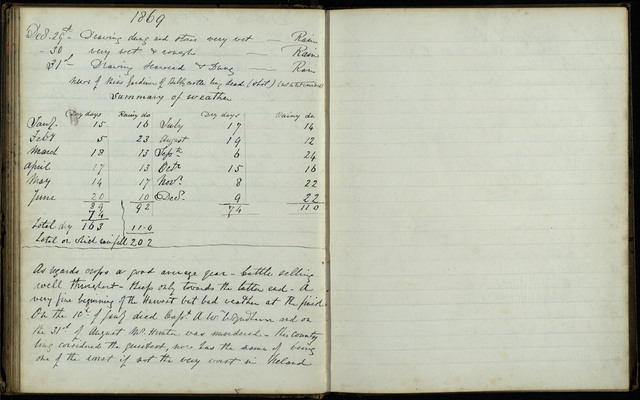 1869
Decr. 29th Drawing dung and stones very wet — Rain
" 30 very wet & rough — Rain
31st — Drawing Seaweed & Dung — Rain
News of Miss Gardiner of being dead (shot)
Summary of weather
Dry days Rainy do Dry days Rainy do
Jany. 15 16 July 17 14
Feby 5 23 August 19 12
March 18 13 Septr. 6 24
April 17 13 Octr 15 16
May 14 17 Novr. 8 22
June 20 10 Decr. 9 22
89 92 74 110
74
Total dry 163 110
Total on which rain fell 202
As regards crops a good average year — Cattle selling
well throughout — Sheep only towards the latter end — A
very fine beginning of the Harvest but bad weather at the finish
On the 10th of Jany died Capt. A W Wyndham and on
the 31st of August Mr. Hunter was murdered — this County
long considered the quietest, now has the name of being
one of the worst if not the very worst in Ireland